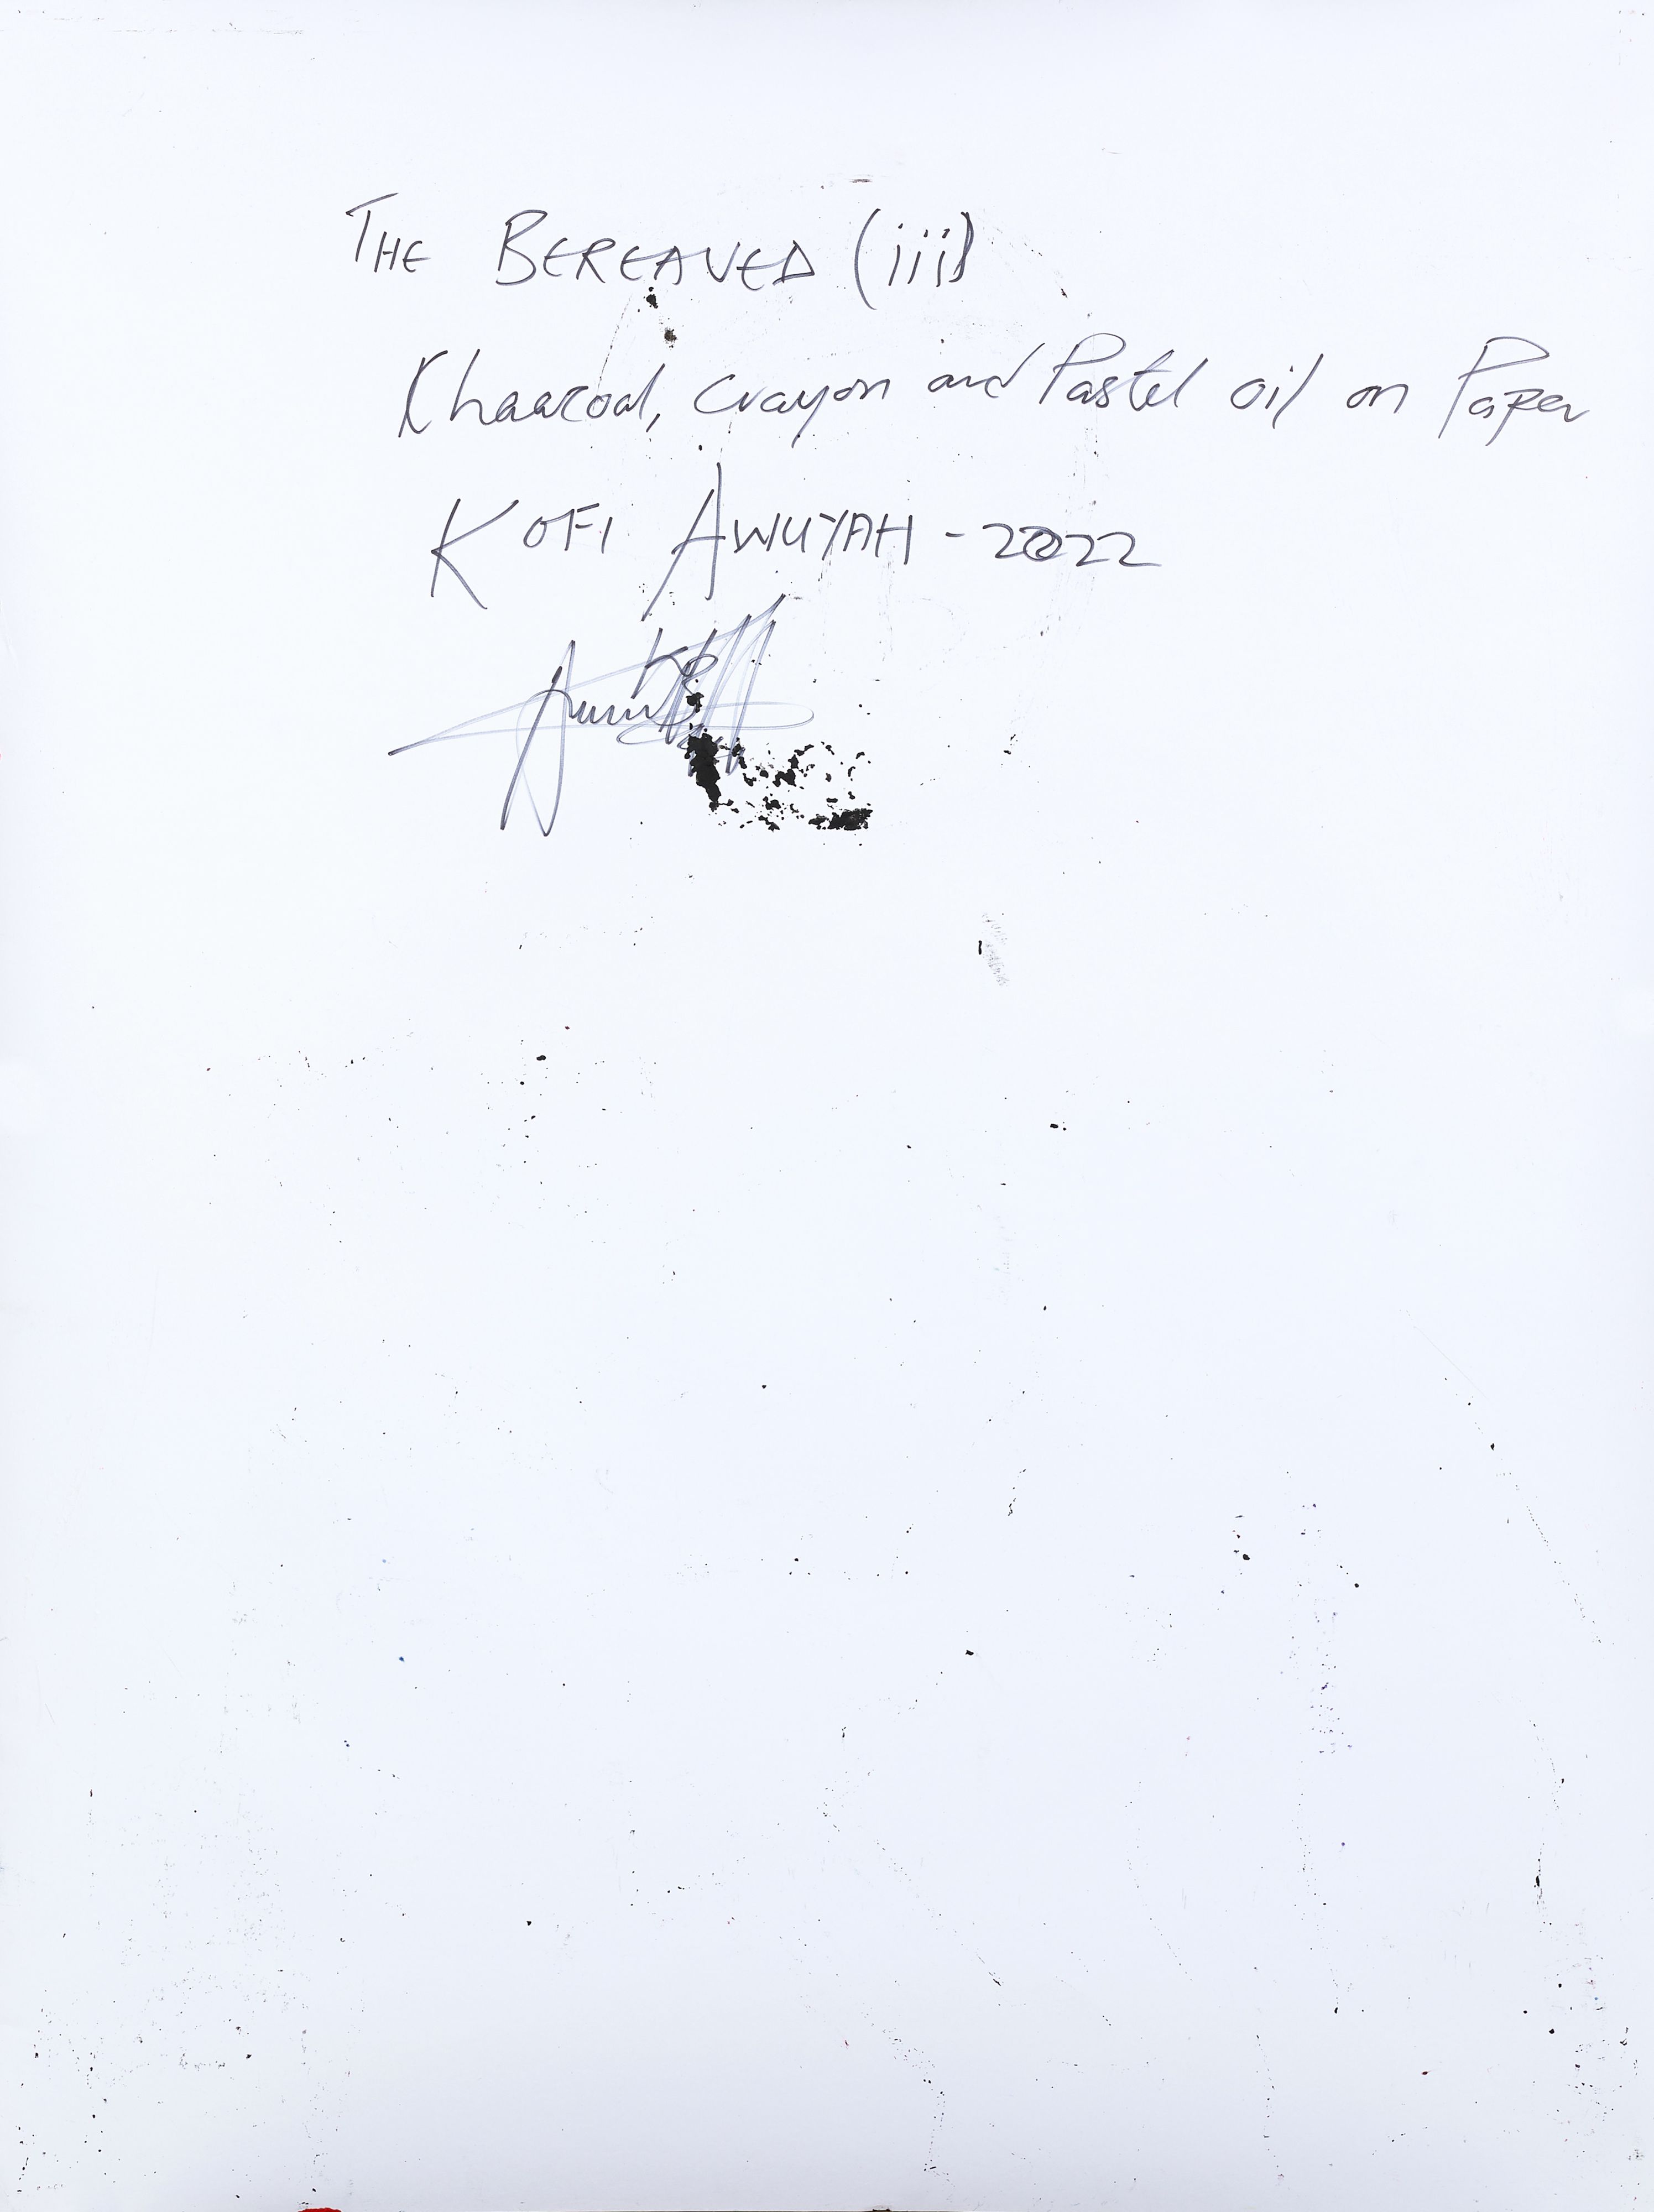 THE BEREAVED (iii)
Khaarcoal, crayon and Pastel oil on Paper
KOFI AWUYAH - 2022